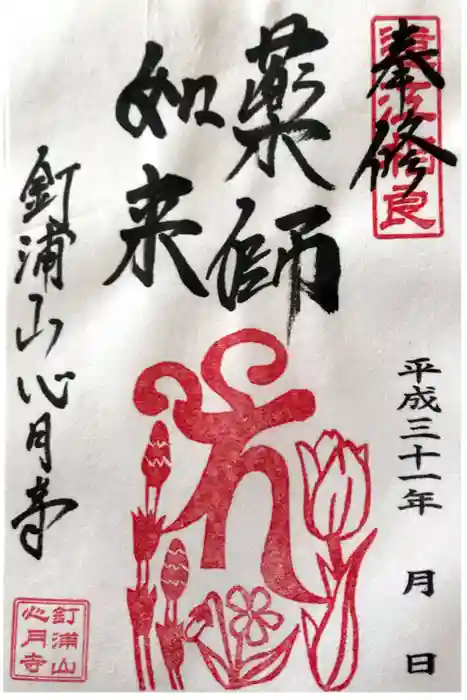 奉修
平成三十一年 月 日
薬師
如来
釘浦山心月寺
釘浦山
心月寺